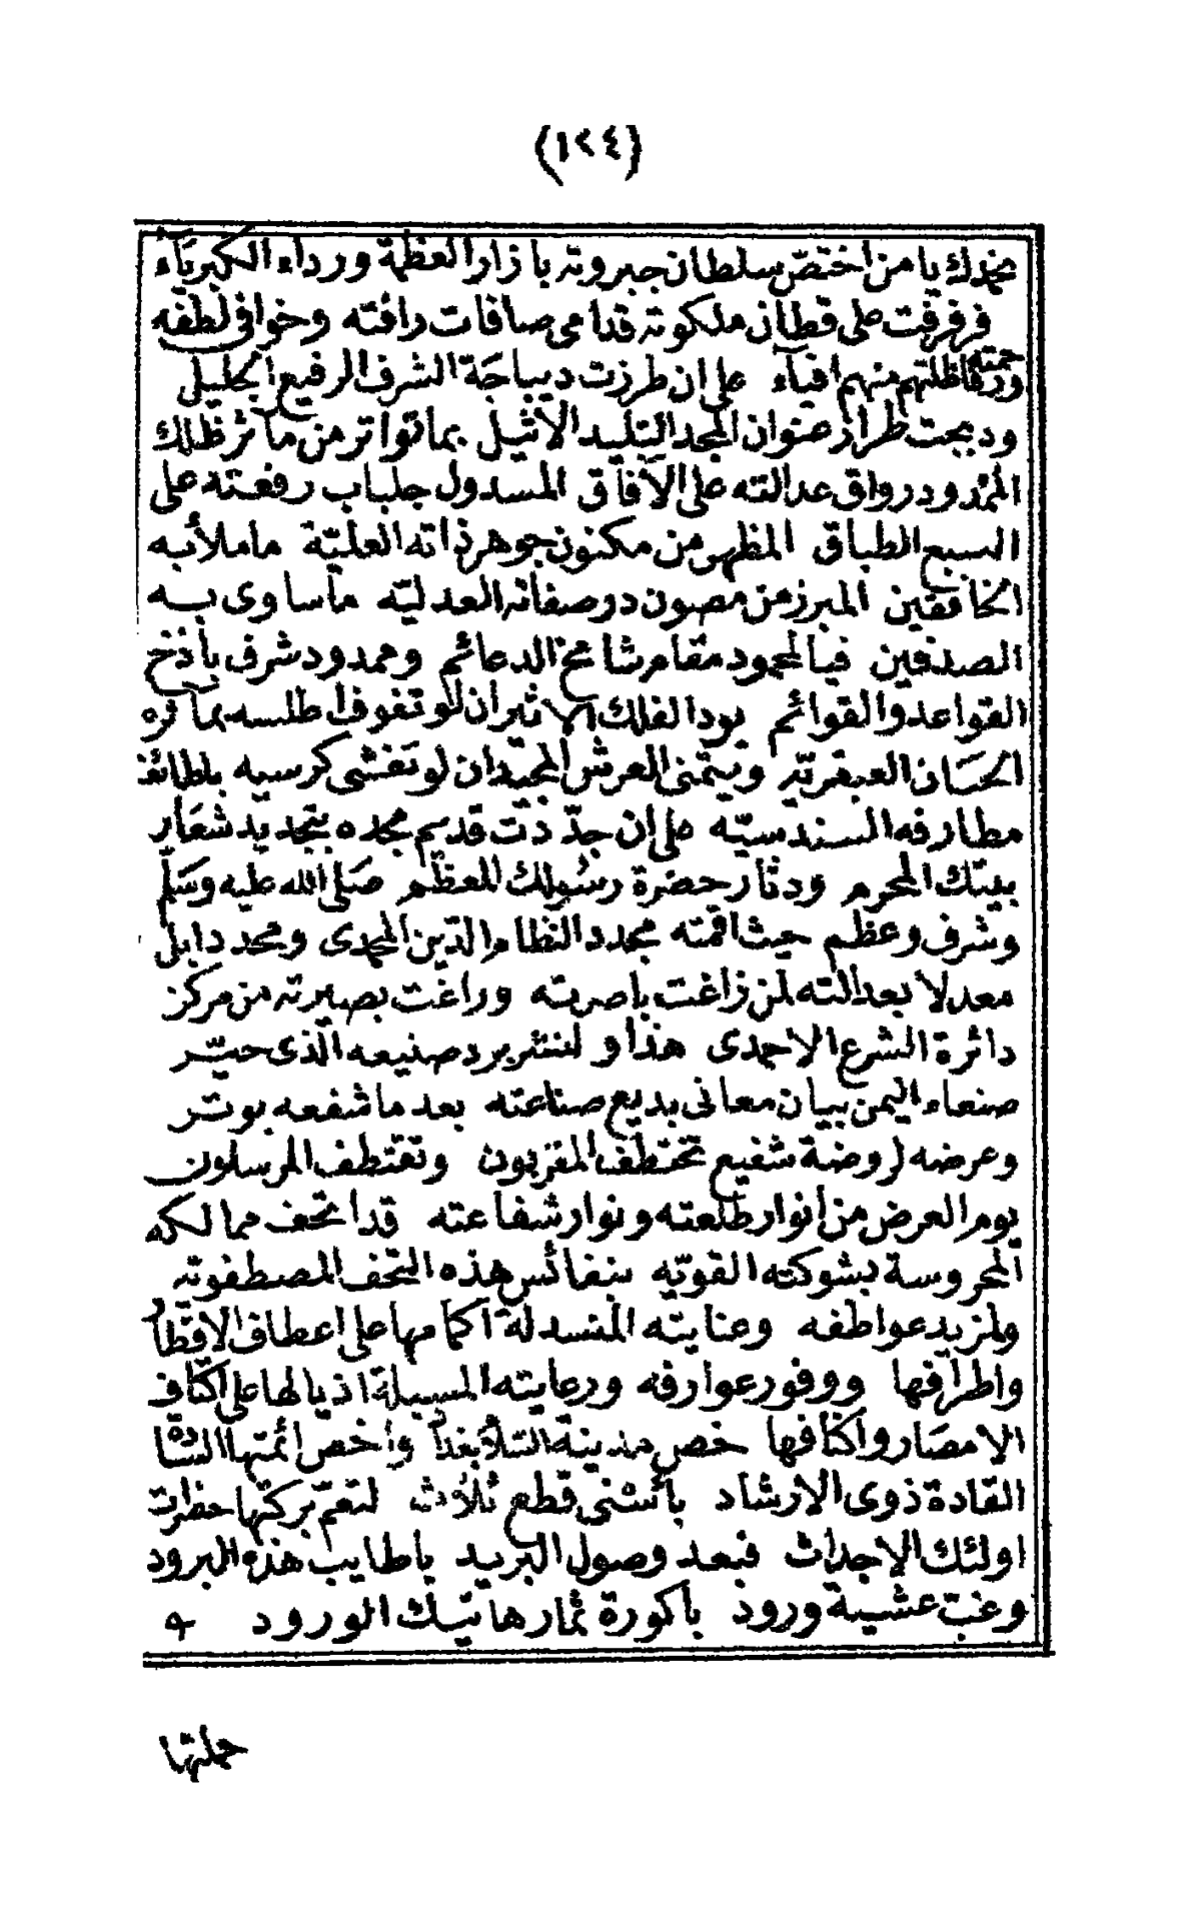 (١٢٤)
نحمدك يا من اختصّ سلطان جبروته بازار العظمة ورداء الكبرياء
فرفرفت على قطان ملكوته قدامى صافات رافته وخوافى لطفه
ورحمته فاظلتهم منهم افياء على ان طرزت ديباجة الشرف الرفيع الجليلى
ودبجت طراز عنوان المجد التليد الاثيل بما تواتر من مآثر ظلك
الممدود رواق عدالته على الآفاق المسدول جلباب رفعته على
السبع الطباق المظهر من مكنون جوهر ذاته العليّة ما ملأ به
الخافقين المبرز من مصون در صفاته العدليّه ما ساوى به
الصدفين فيالمحمود مقام شامخ الدعائم وممدود شرف باذخ
القواعد والقوائم يود الفلك الاثير ان لو تفوف اطلسه بمآثره
الحسان العبقريّه ويتمنى العرش المجيد ان لو تغشى كرسيه بلطائف
مطارفه السندسيّه على ان جدّدت قديم مجده بتجديد شعار
بيتك المحرم ودثار حضرة رسولك المعظم صلى الله عليه وسلم
وشرف وعظم حيث اقمته مجدد النظام الدين المحمدى ومحددا بل
معدلا بعدالته لمن زاغت باصرته وراغت بصيرته من مركز
دائرة الشرع الاحمدى هذا ولننثر برد صنيعه الّذى حيّر
صنعاء اليمن ببيان معانى بديع صناعته بعد ما شفعه بوتر
وعرضه لروضة شفيع تختطف المقربون وتقتطف المرسلون
يوم العرض من انوار طلعته ونوار شفاعته قد اتحف ممالكه
المحروسة بشوكته القويّه بنفائس هذه التحف المصطفويّه
ولمزيد عواطفه وعنايته المنسدلة اكمامها على اعطاف الاقطار
واطرافها ووفور عوارفه ورعايته المسبلة اذيالها على اكتاف
الامصار واكنافها خص مدينة السلام بغداد وأخص ائمتها السادة
القادة ذوى الارشاد بأسنى قطع ثلاث لتعم بركتها حضرات
اولئك الاجداث فبعد وصول البريد باطايب هذه البرود
وغب عشية ورود باكورة ثمار هاتيك الورود
حملتها